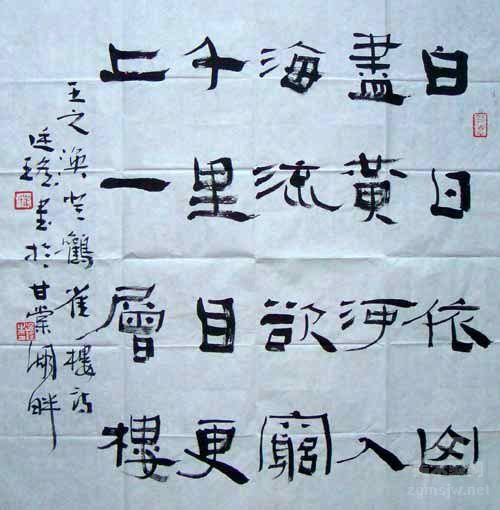 白日依山
盡黃河入
海流欲窮
千里目更
上一層樓
王之渙登鸛雀樓詩
書於甘棠湖畔
zgmsjw.net